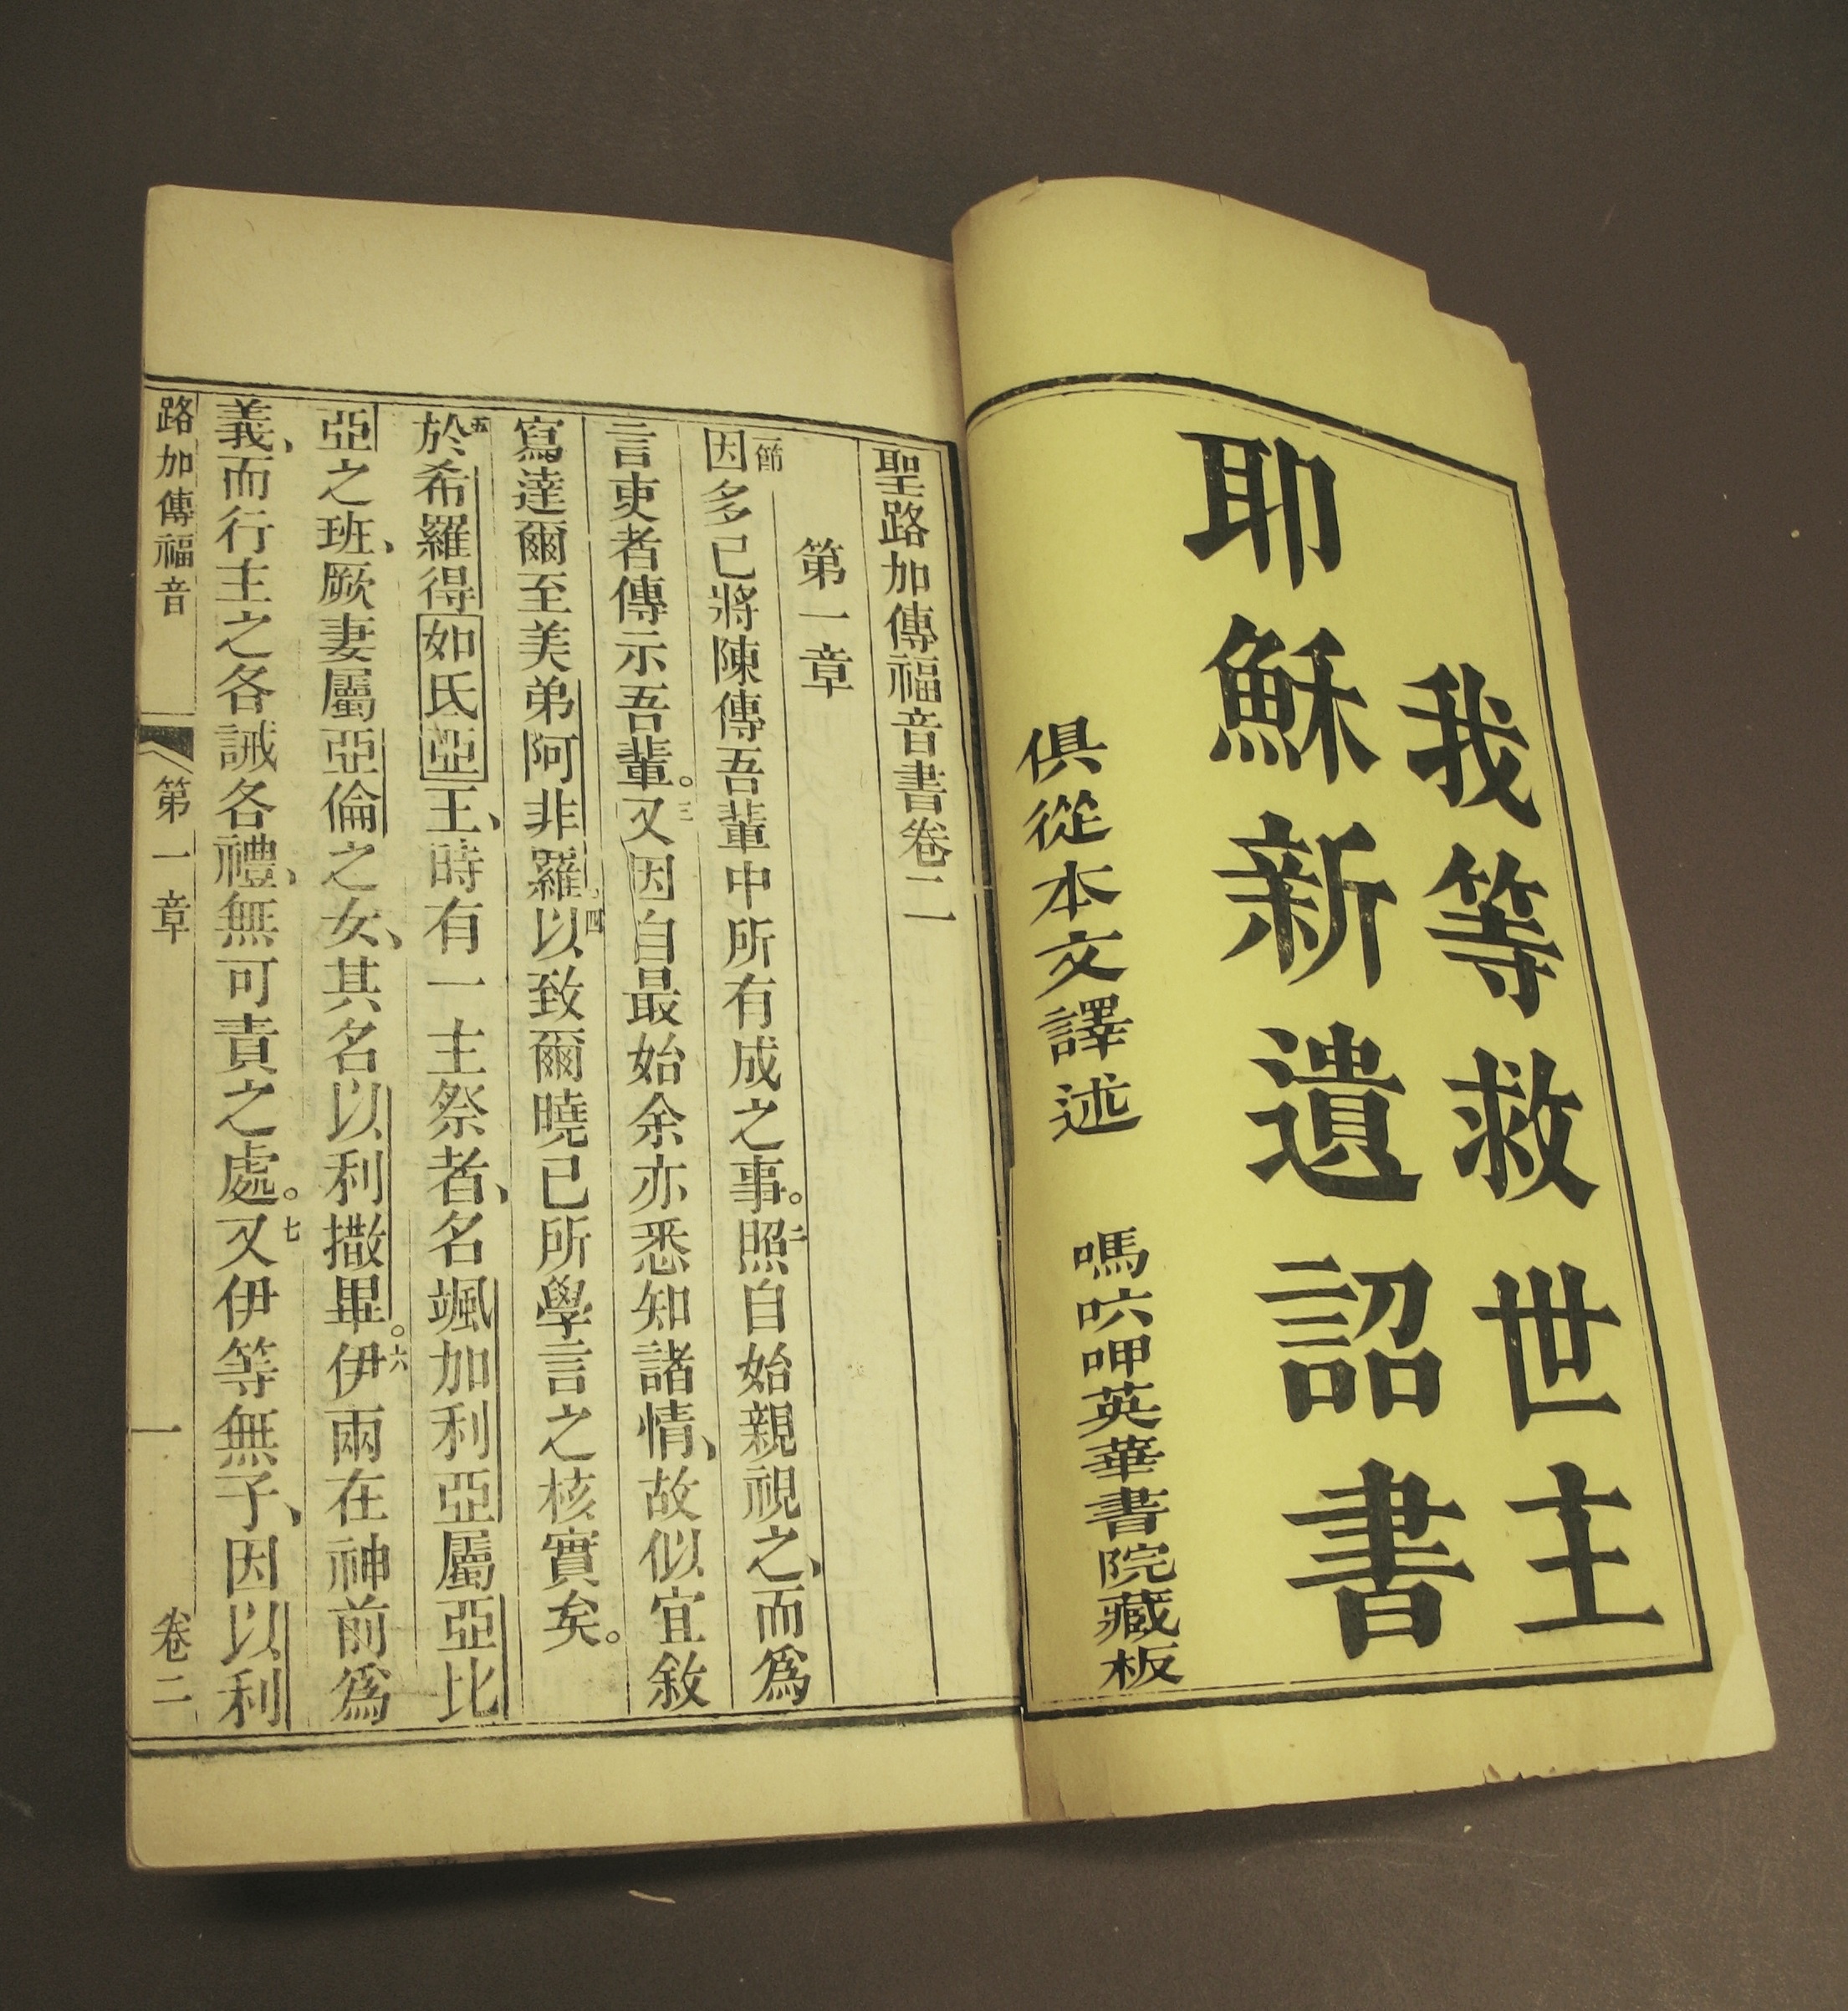 我等救世主
耶穌新遺詔書
俱從本文譯述
嗎㕸呷英華書院藏板
聖路加傳福音書卷二
第一章
節因多已將陳傳吾輩中所有成之事。二照自始親視之、而爲
言吏者傳示吾輩。三又因自最始余亦悉知諸情、故似宜敘
寫達爾至美弟阿非羅。四以致爾曉已所學言之核實矣。
五於希羅得如氏亞王、時有一主祭者、名颯加利亞屬亞比
亞之班、厥妻屬亞倫之女、其名以利撒畢。六伊兩在神前爲
義、而行主之各誡各禮、無可責之處。七又伊等無子、因以利
路加傳福音 第一章 一 卷二